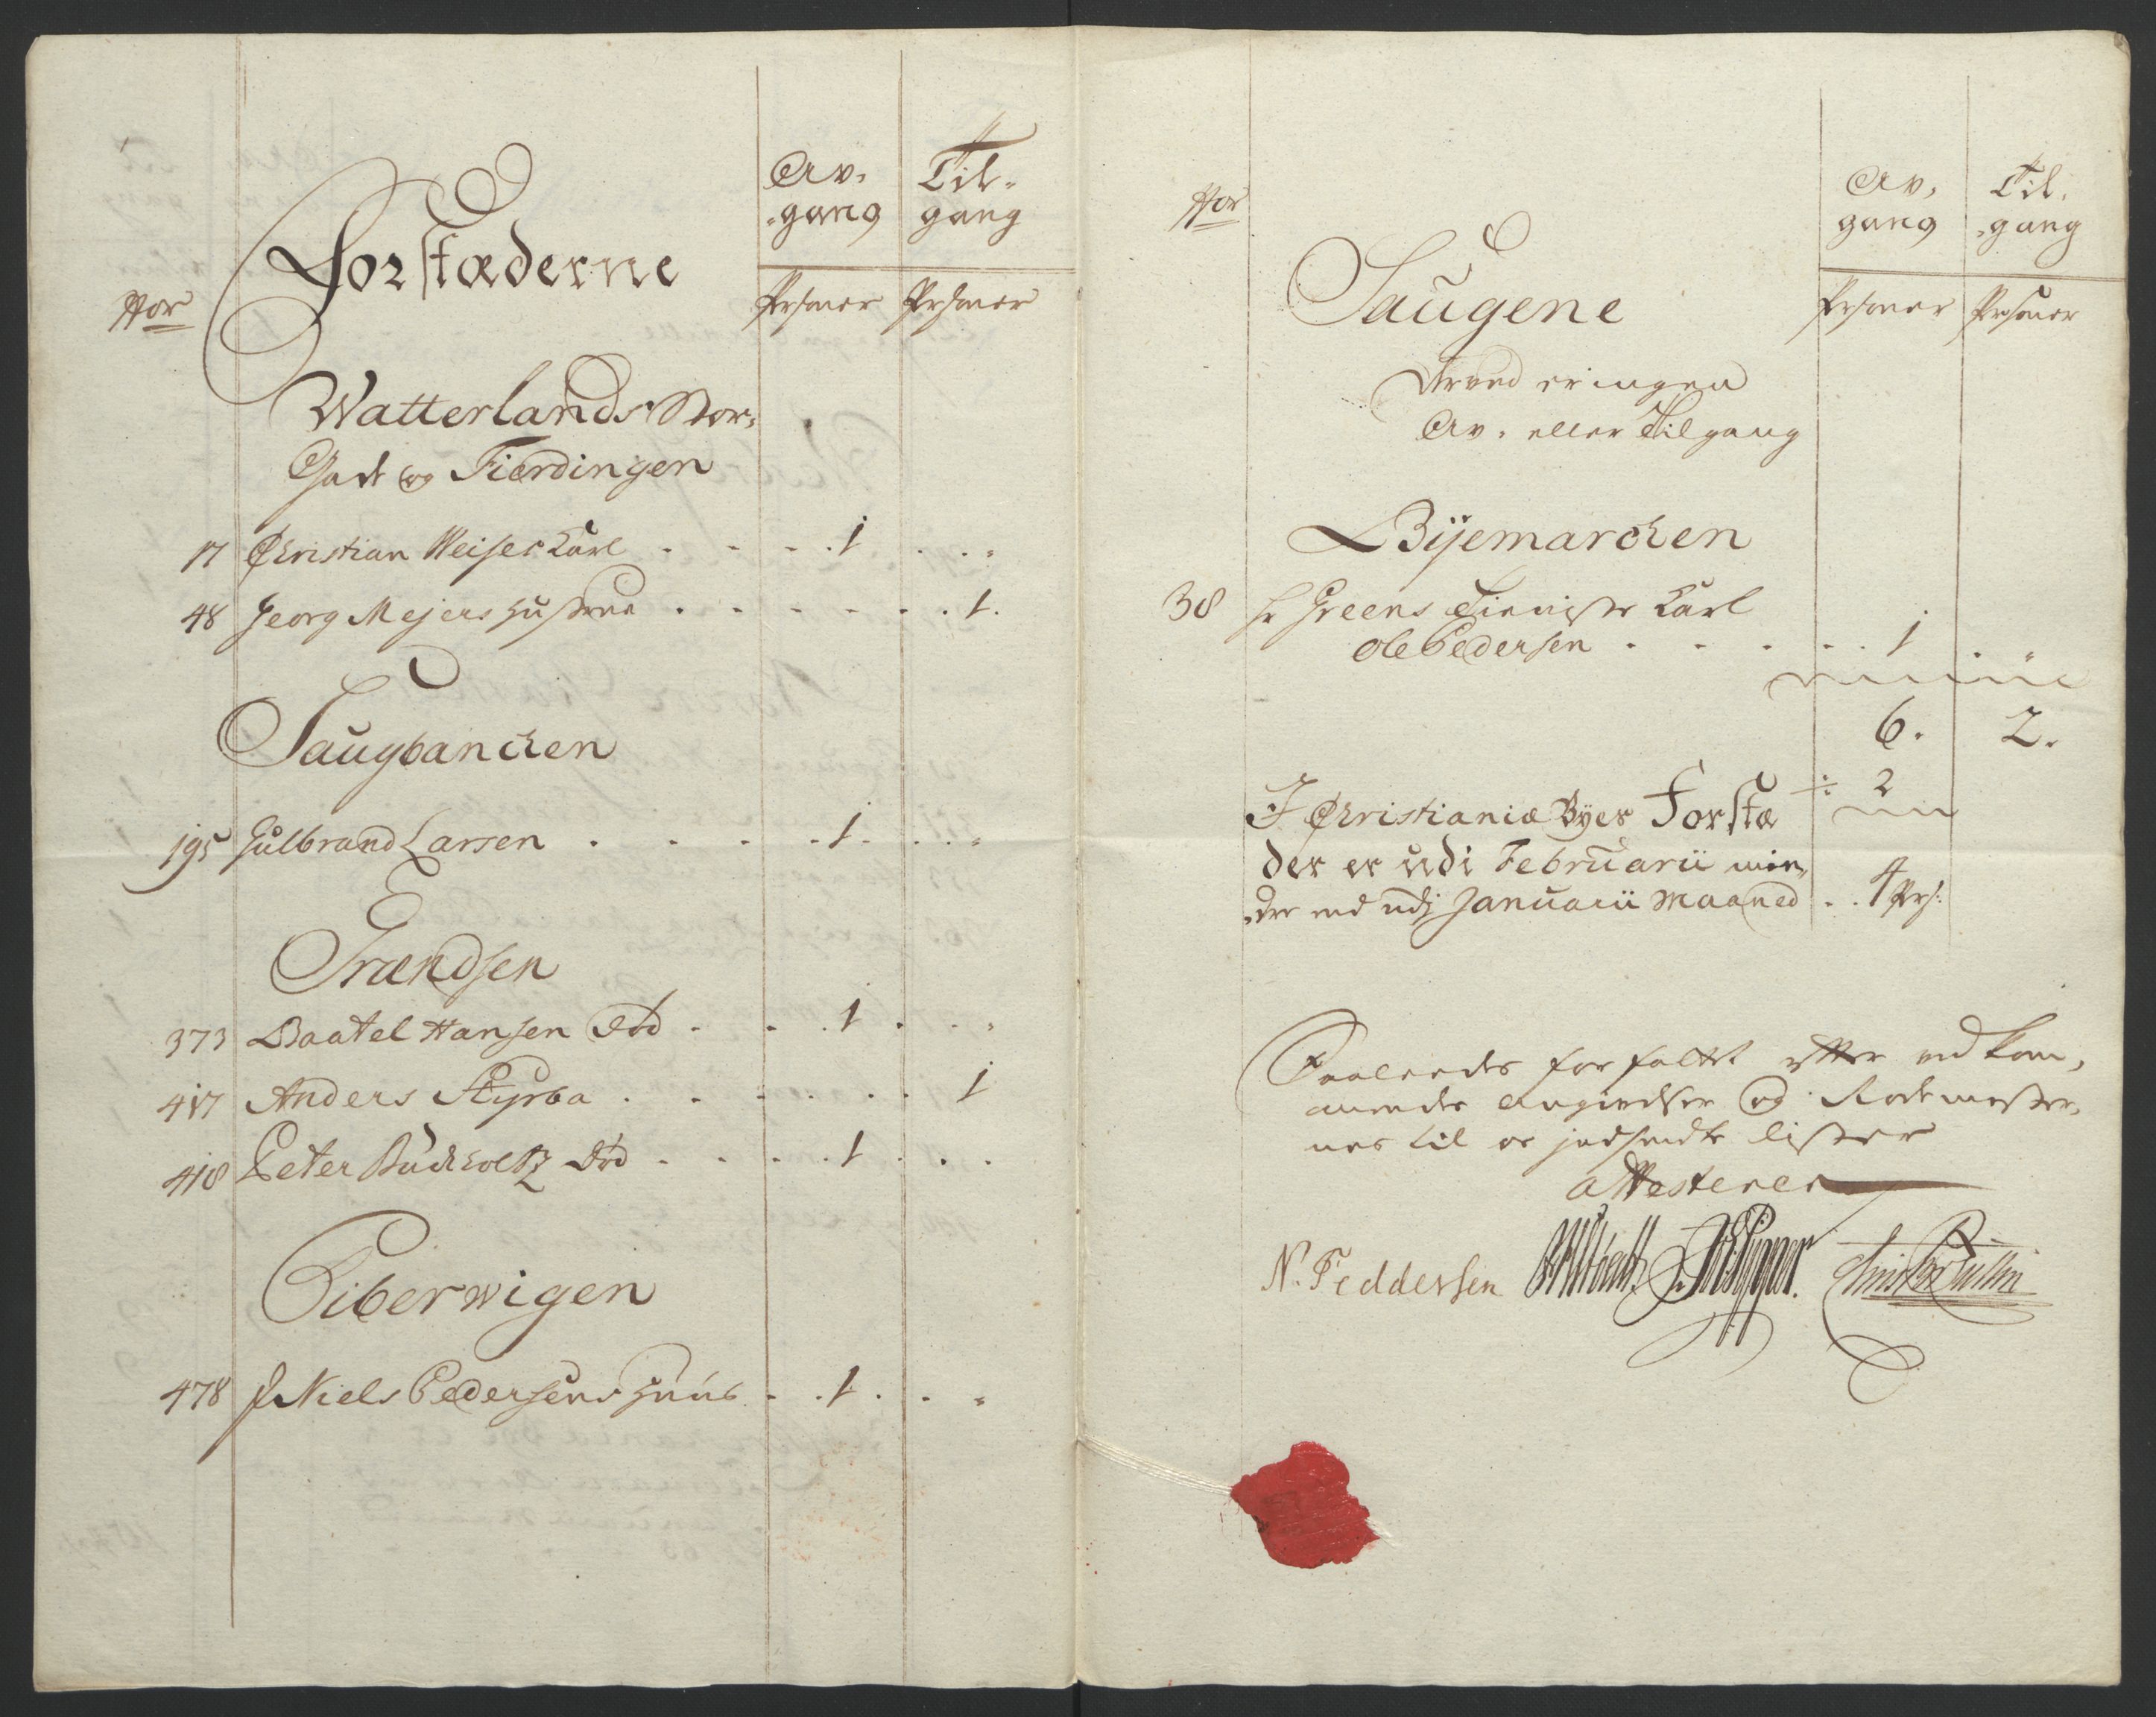 Av-
-gang
Til-
gang
Forstæderne
Nor
Persohner
Persohner
Watterlands Stor-
Gade og Fierdingen
17 Christian Weiser Karl . . . . 1 . . . "
48 Georg Mejers Hustrue . . . . . . . 1.
Saugbanchen
195 Gulbrand Larsen . . . . 1 . . . "
Grændsen
373 Baatel Hansen Död . . . 1 . . "
417 Anders Styrba . . . . . . 1
418 Peter Buchholtz Död . . . . 1 . . .
Piberwigen
478 Niels Pedersens Huus . . 1 . . "
Nor
Av-
gang
Til-
-gang
Saugene
Persohner
Persohner
Derved er ingen
Av- eller Tilgang
Bÿemarchen
38 Hr Greens Tieniste Karl
Ole Pedersen . . . . . 1 . "
6. 2.
÷ 2
I Christianiæ Byes Forstæ
der er udi Februarii min-
-dre end udj Januarii Maaned . . 4 Prs:
Saaledes forfattet efter ved kom-
mendes Angivelser og Rodemester-
nes til os indsendte Lister
attesterer
N. Feddersen